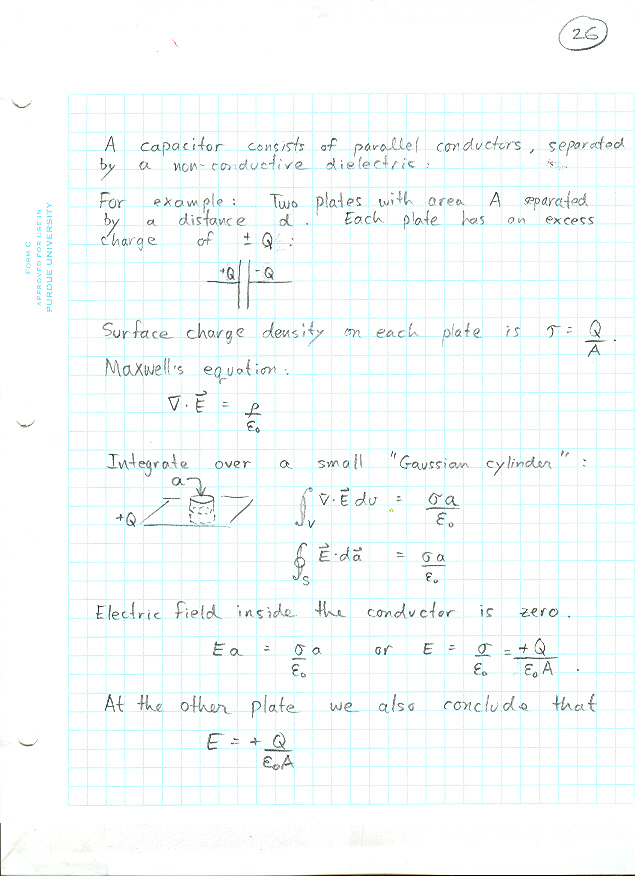 26
FORM C
APPROVED FOR USE IN
PURDUE UNIVERSITY
A capacitor consists of parallel conductors, separated
by a non-conductive dielectric.
For example: Two plates with area A separated
by a distance d. Each plate has an excess
charge of ± Q:
+Q -Q
Surface charge density on each plate is σ = Q/A.
Maxwell's equation:
∇·E⃗ = ρ/ε₀
Integrate over a small "Gaussian cylinder":
a
+Q
∫_V ∇·E⃗ dv = σa/ε₀
∮_S E⃗·da⃗ = σa/ε₀
Electric field inside the conductor is zero.
Ea = σ/ε₀ a or E = σ/ε₀ = +Q/ε₀A.
At the other plate we also conclude that
E = + Q/ε₀A